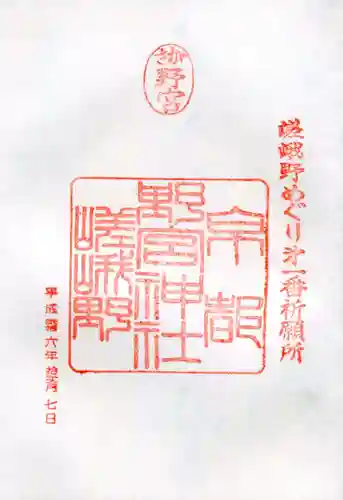 野宮
嵯峨野めぐり第一番祈願所
京都
野宮神社
嵯峨野
平成 六年 月 七日